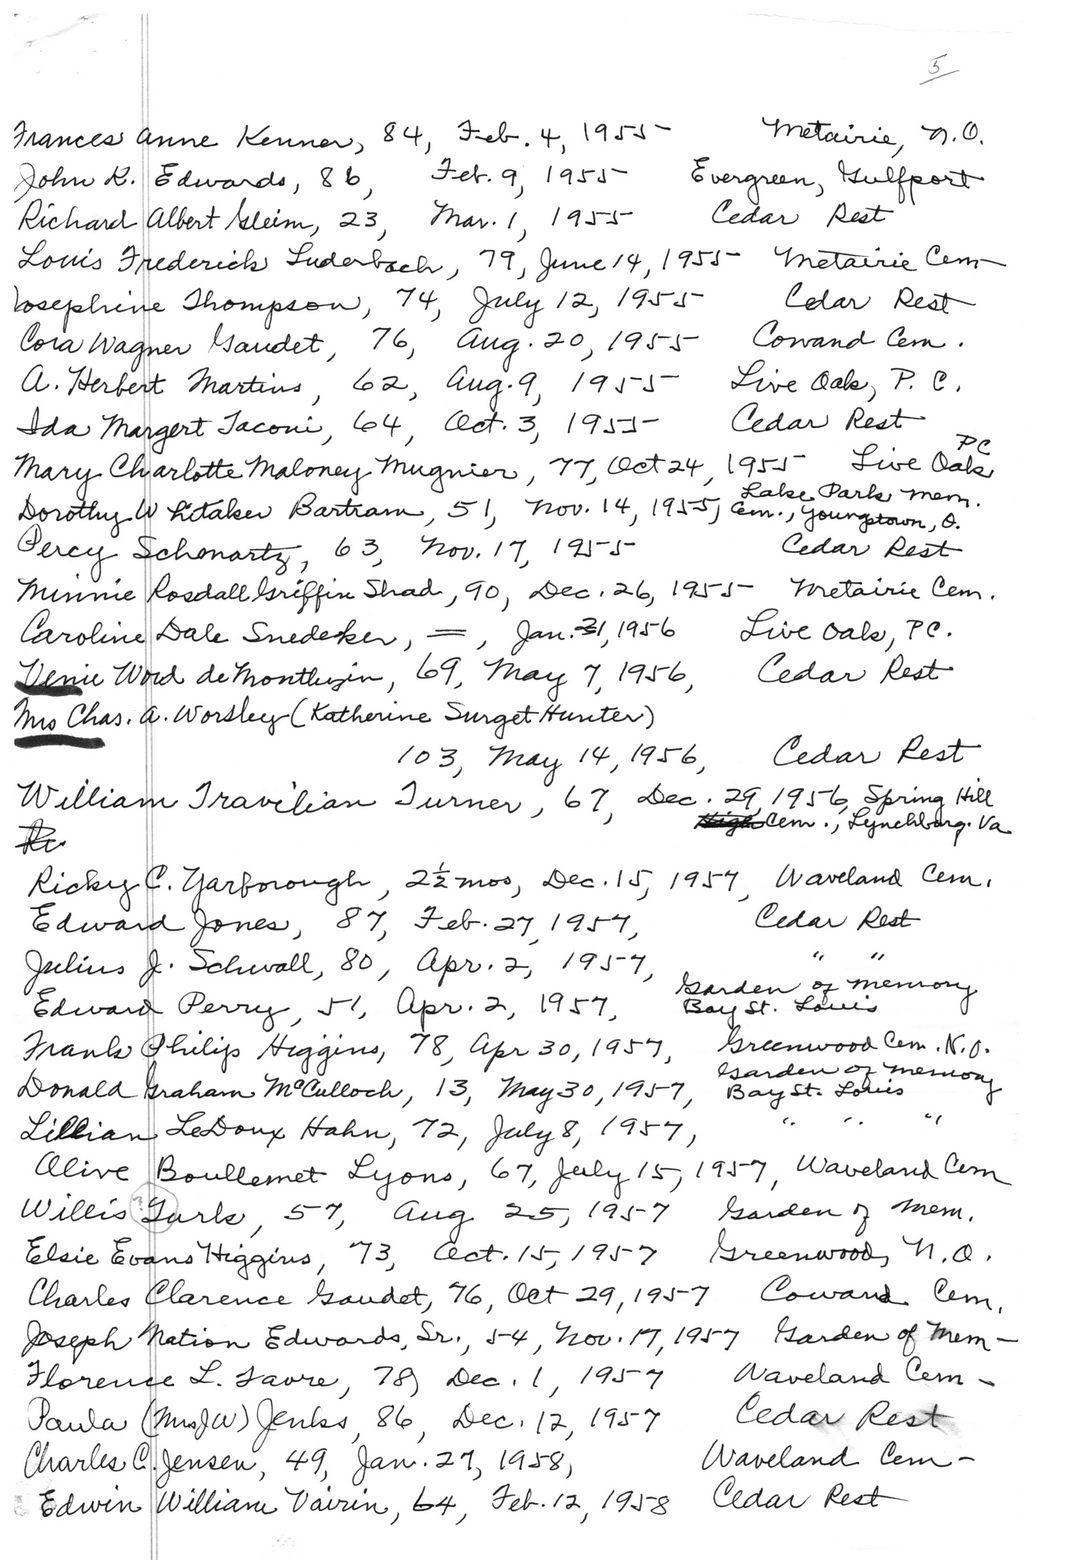 5
Frances Anne Kenner, 84, Feb. 4, 1955 Metairie, N.O.
John R. Edwards, 86, Feb. 9, 1955 Evergreen, Gulfport
Richard Albert Gleim, 23, Mar. 1, 1955 Cedar Rest
Louis Frederick Luderbach, 79, June 14, 1955 Metairie Cem
Josephine Thompson, 74, July 12, 1955 Cedar Rest
Cora Wagner Gaudet, 76, Aug. 20, 1955 Cowand Cem.
A. Herbert Martins, 62, Aug. 9, 1955 Live Oak, P. C.
Ida Margert Taconi, 64, Oct. 3, 1955 Cedar Rest
Mary Charlotte Maloney Mugnier, 77, Oct 24, 1955 Live Oak PC
Dorothy Whitaker Bartram, 51, Nov. 14, 1955, Lake Park Mem.
Cem., Youngstown, O.
Percy Schonartz, 63, Nov. 17, 1955 Cedar Rest
Minnie Rosdall Griffin Shad, 90, Dec. 26, 1955 Metairie Cem.
Caroline Dale Snedeker, =, Jan. 31, 1956 Live Oak, P.C.
Venie Word de Montluzin, 69, May 7, 1956, Cedar Rest
Mrs Chas. A. Worsley (Katherine Surget Hunter)
103, May 14, 1956, Cedar Rest
William Travilian Turner, 67, Dec. 29, 1956, Spring Hill
High Cem., Lynchburg. Va
Ricky C. Yarborough, 2½ mos, Dec. 15, 1957, Waveland Cem.
Edward Jones, 87, Feb. 27, 1957, Cedar Rest
Julius J. Schwall, 80, Apr. 2, 1957, " "
Edward Perry, 51, Apr. 2, 1957, Garden of Memory
Bay St. Louis
Frank Philip Higgins, 78, Apr 30, 1957, Greenwood Cem. N.O.
Donald Graham McCulloch, 13, May 30, 1957, Garden of Memory
Bay St. Louis
Lillian LeDoux Hahn, 72, July 8, 1957, " " "
Alive Boullemet Lyons, 67, July 15, 1957, Waveland Cem
Willis Turk, 57, Aug 25, 1957 Garden of Mem.
Elsie Evans Higgins, 73, Oct. 15, 1957 Greenwood, N.O.
Charles Clarence Gaudet, 76, Oct 29, 1957 Cowand Cem.
Joseph Nation Edwards, Sr., 54, Nov. 17, 1957 Garden of Mem-
Florence L. Favre, 78, Dec. 1, 1957 Waveland Cem -
Paula (Mrs JW) Jenks, 86, Dec. 12, 1957 Cedar Rest
Charles C. Jensen, 49, Jan. 27, 1958, Waveland Cem-
Edwin William Vairin, 64, Feb. 12, 1958 Cedar Rest